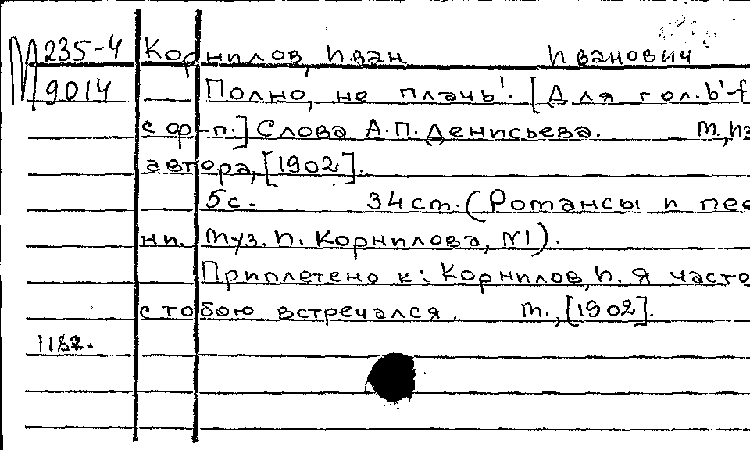 М 235-4 Корнилов, Иван Иванович
9014 Полно, не плачь!. [Для гол. b'-f
с ф-п.] Слова А.П. Денисьева. М., из
автора, [1902].
5с. 34 ст. (Романсы и пес
ни. Муз. И. Корнилова, N1).
Приплетено к: Корнилов, И. Я часто
с тобою встречался. М., [1902].